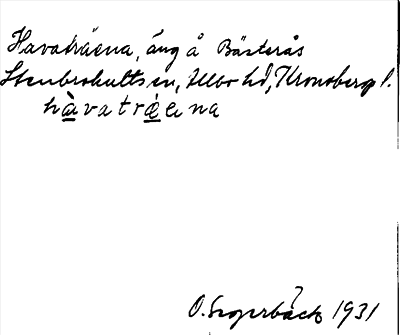 Havaträena, äng å Bästerås
Stenbrohults sn, Allbo hd, Kronobergs l.
hàvatræ̀ena
O. Segerbäck 1931